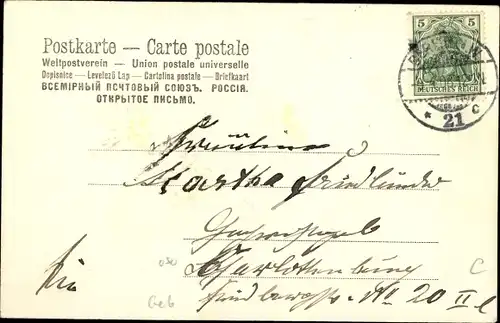 Postkarte — Carte postale
Weltpostverein — Union postale universelle
Dopisnice — Levelező Lap — Cartolina postale — Briefkaart
ВСЕМІРНЫЙ ПОЧТОВЫЙ СОЮЗЪ. РОССІЯ.
ОТКРЫТОЕ ПИСЬМО.
5 5
DEUTSCHES REICH
* 21 c
Fräulein
Martha Friedländer
Charlottenburg
No 20 II
Geb
C